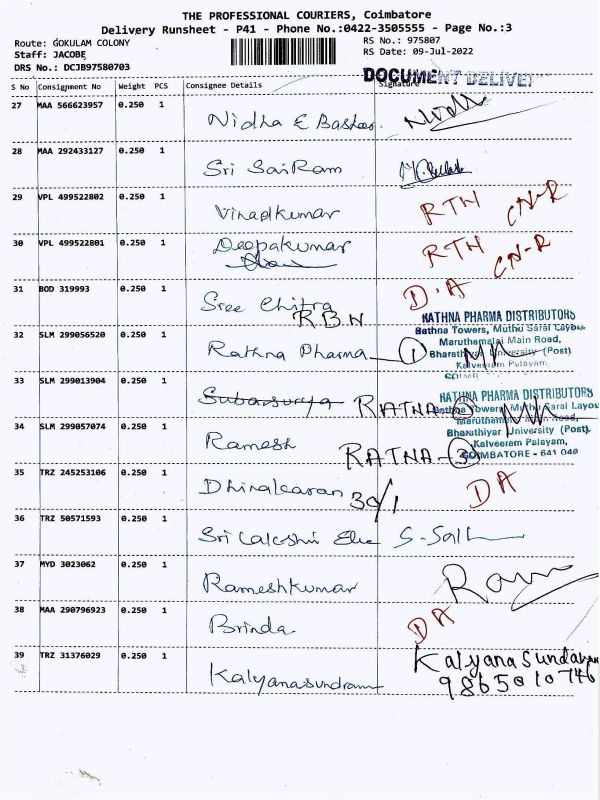 THE PROFESSIONAL COURIERS, Coimbatore
Delivery Runsheet - P41 - Phone No.:0422-3505555 - Page No.:3
Route: GOKULAM COLONY
RS No.: 975807
Staff: JACOBE
RS Date: 09-Jul-2022
DRS No.: DCJB97580703
DOCUMENT DELIVE
S No Consignment No Weight PCS Consignee Details Signature
27 MAA 566623957 0.250 1
Nidha E Basheer
28 MAA 292433127 0.250 1
Sri SaiRam
29 VPL 499522802 0.250 1
Vinodkumar RTN CN-R
30 VPL 499522801 0.250 1
Deepakumar RTN CN-R
31 BOD 319993 0.250 1
Sree Chitra D.A
RBN
RATHNA PHARMA DISTRIBUTORS
Rathna Towers, Muthu Saral Layou
Maruthamalai Main Road,
32 SLM 299056520 0.250 1
Rathna Pharma 1 Bharathiyar University (Post)
Kalveeram Pulayam,
33 SLM 299013904 0.250 1
RATHNA PHARMA DISTRIBUTORS
Subarsurya RATNA-
Rathna Towers, Muthu Saral Layou
Maruthamalai Main Road,
34 SLM 299057074 0.250 1
Bharathiyar University (Post)
Ramesh
Kalveeram Palayam,
RATNA-3 COIMBATORE - 641 046
35 TRZ 245253106 0.250 1
Dhinakaran 30/1 DA
36 TRZ 50571593 0.250 1
Sri Lakshmi Ele
37 MYD 3023062 0.250 1
Rameshkumar Ram
38 MAA 290796923 0.250 1
Brinda DA
39 TRZ 31376029 0.250 1
Kalyanasundaram
Kalyanasundram 9865010746